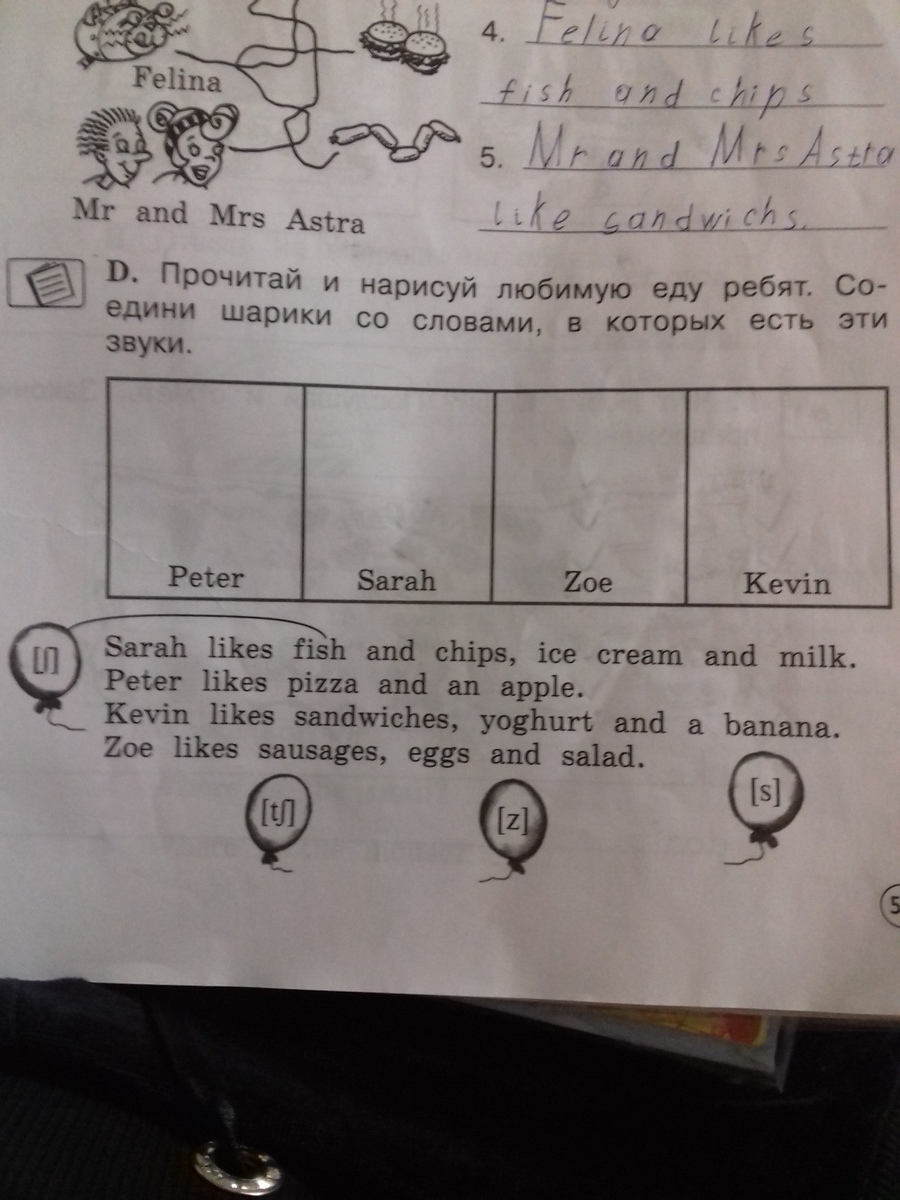 4. Felina likes
Felina
fish and chips
5. Mr and Mrs Astra
Mr and Mrs Astra
like sandwichs.
D. Прочитай и нарисуй любимую еду ребят. Со-
едини шарики со словами, в которых есть эти
звуки.
Peter Sarah Zoe Kevin
[ʃ]
Sarah likes fish and chips, ice cream and milk.
Peter likes pizza and an apple.
Kevin likes sandwiches, yoghurt and a banana.
Zoe likes sausages, eggs and salad.
[tʃ] [z] [s]